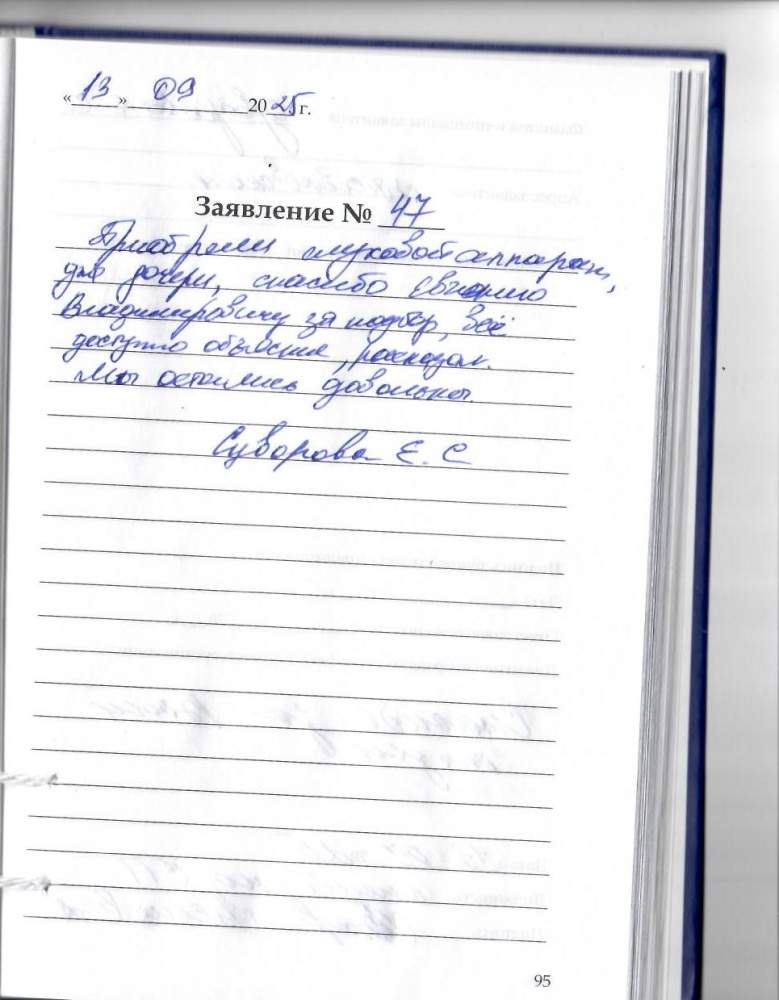 «13» 09 2025 г.
Заявление № 47
Приобрели слуховой аппарат,
для дочери, спасибо Евгению
Владимировичу за подбор, всё
доступно объяснил, рассказал.
Мы остались довольны.
Суворова Е. С
95